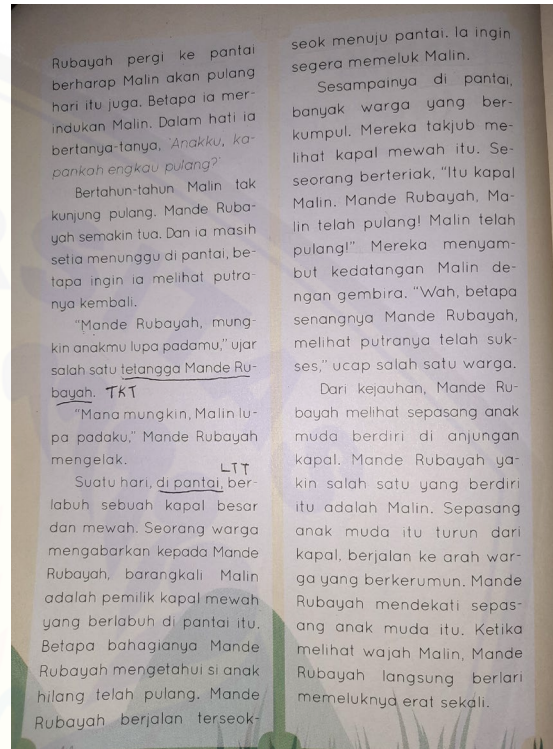 Rubayah pergi ke pantai
berharap Malin akan pulang
hari itu juga. Betapa ia mer-
indukan Malin. Dalam hati ia
bertanya-tanya, 'Anakku, ka-
pankah engkau pulang?'
Bertahun-tahun Malin tak
kunjung pulang. Mande Ruba-
yah semakin tua. Dan ia masih
setia menunggu di pantai, be-
tapa ingin ia melihat putra-
nya kembali.
"Mande Rubayah, mung-
kin anakmu lupa padamu," ujar
salah satu tetangga Mande Ru-
bayah. TKT
"Mana mungkin, Malin lu-
pa padaku," Mande Rubayah
mengelak.
LTT
Suatu hari, di pantai, ber-
labuh sebuah kapal besar
dan mewah. Seorang warga
mengabarkan kepada Mande
Rubayah, barangkali Malin
adalah pemilik kapal mewah
yang berlabuh di pantai itu.
Betapa bahagianya Mande
Rubayah mengetahui si anak
hilang telah pulang. Mande
Rubayah berjalan terseok-
seok menuju pantai. Ia ingin
segera memeluk Malin.
Sesampainya di pantai,
banyak warga yang ber-
kumpul. Mereka takjub me-
lihat kapal mewah itu. Se-
seorang berteriak, "Itu kapal
Malin. Mande Rubayah, Ma-
lin telah pulang! Malin telah
pulang!" Mereka menyam-
but kedatangan Malin de-
ngan gembira. "Wah, betapa
senangnya Mande Rubayah,
melihat putranya telah suk-
ses," ucap salah satu warga.
Dari kejauhan, Mande Ru-
bayah melihat sepasang anak
muda berdiri di anjungan
kapal. Mande Rubayah ya-
kin salah satu yang berdiri
itu adalah Malin. Sepasang
anak muda itu turun dari
kapal, berjalan ke arah war-
ga yang berkerumun. Mande
Rubayah mendekati sepas-
ang anak muda itu. Ketika
melihat wajah Malin, Mande
Rubayah langsung berlari
memeluknya erat sekali.